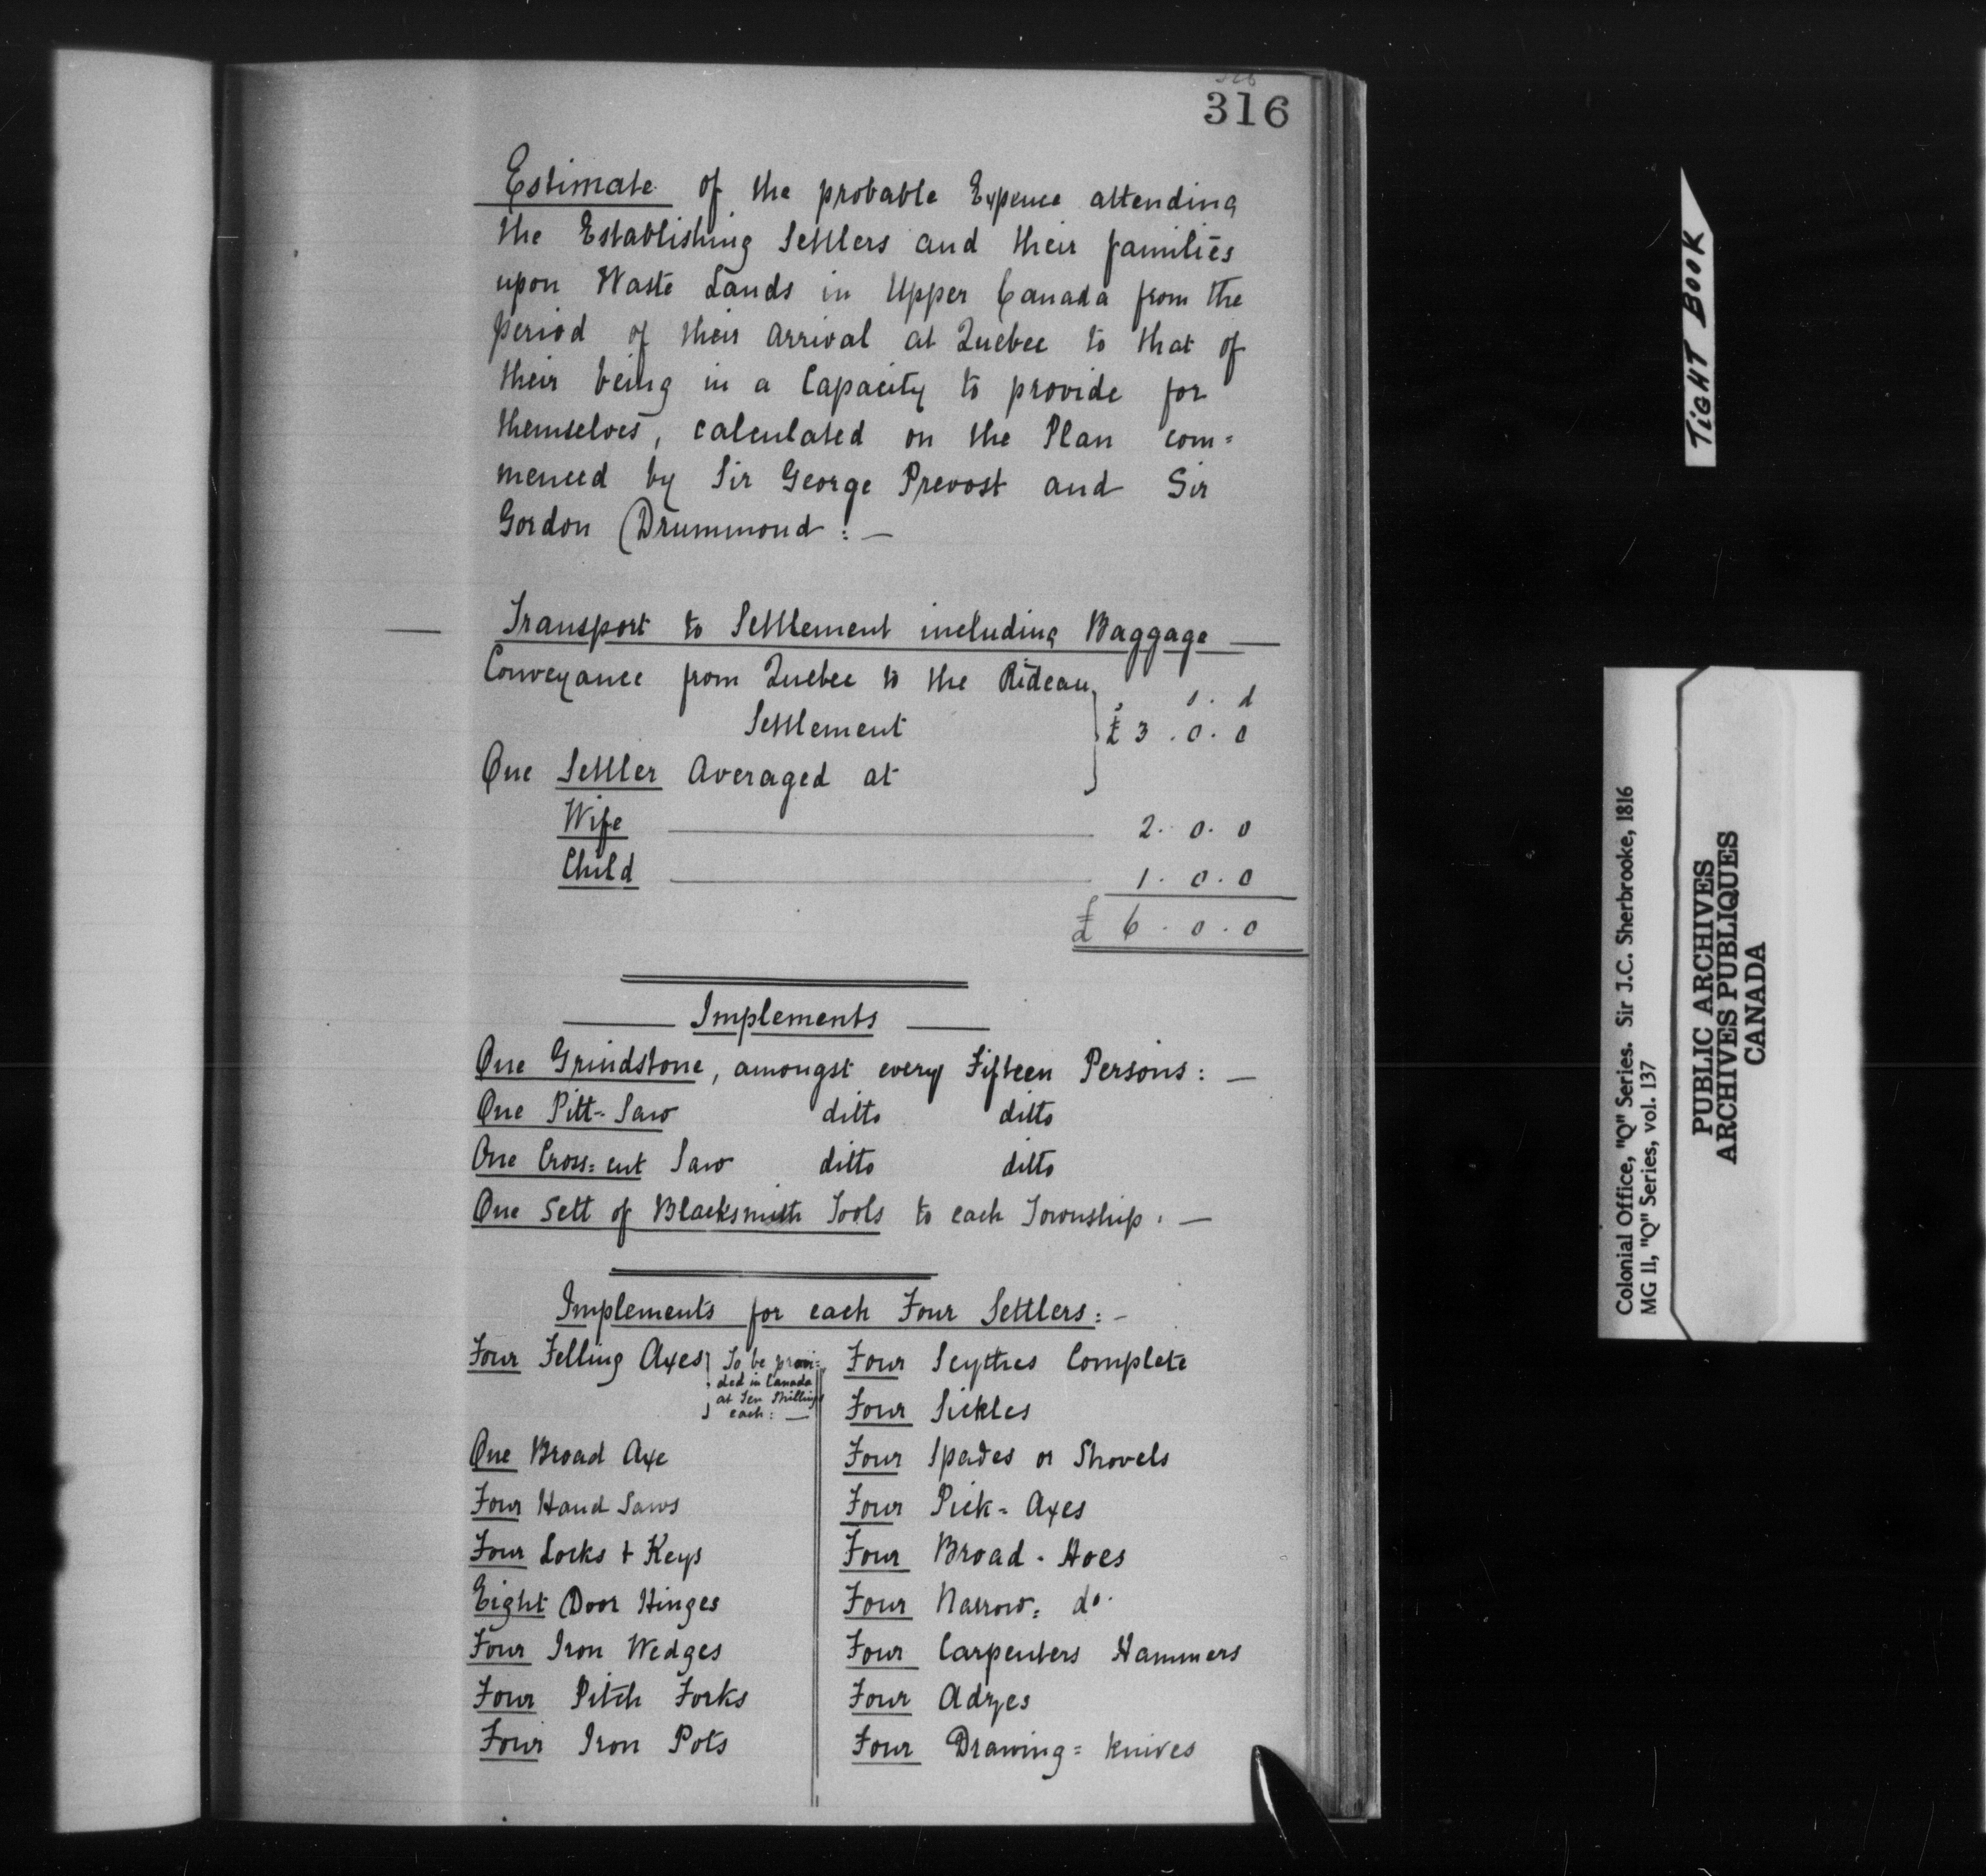 316
Estimate of the probable Expence attending
the Establishing Settlers and their families
upon Waste Lands in Upper Canada from the
period of their arrival at Quebec to that of
their being in a Capacity to provide for
themselves, calculated on the Plan com=
menced by Sir George Prevost and Sir
Gordon Drummond : —
Transport to Settlement including Baggage —
Conveyance from Quebec to the Rideau
s. d
Settlement £3 . 0 . 0
One Settler Averaged at
Wife 2 . 0 . 0
Child 1 . 0 . 0
£ 6 . 0 . 0
Implements
One Grindstone, amongst every Fifteen Persons : —
One Pitt-Saw ditto ditto
One Cross=cut Saw ditto ditto
One Sett of Blacksmith Tools to each Township . —
Implements for each Four Settlers : -
Four Felling Axes
To be provi=
ded in Canada
at Ten Shillings
each : —
One Broad Axe
Four Hand Saws
Four Locks + Keys
Eight Door Hinges
Four Iron Wedges
Four Pitch Forks
Four Iron Pots
Four Scythes Complete
Four Sickles
Four Spades or Shovels
Four Pick = Axes
Four Broad - Hoes
Four Narrow = do.
Four Carpenters Hammers
Four Adzes
Four Drawing = knives
TIGHT BOOK
Colonial Office, "Q" Series. Sir J.C. Sherbrooke, 1816
MG 11, "Q" Series, vol. 137
PUBLIC ARCHIVES
ARCHIVES PUBLIQUES
CANADA